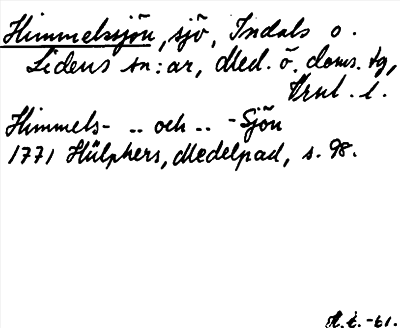 Himmelssjön, sjö, Indals o.
Lidens sn:ar, Med. ö. doms. tg,
l.
Himmels- .. och .. -Sjön
1771 Hülphers, Medelpad, s. 98.
-61.